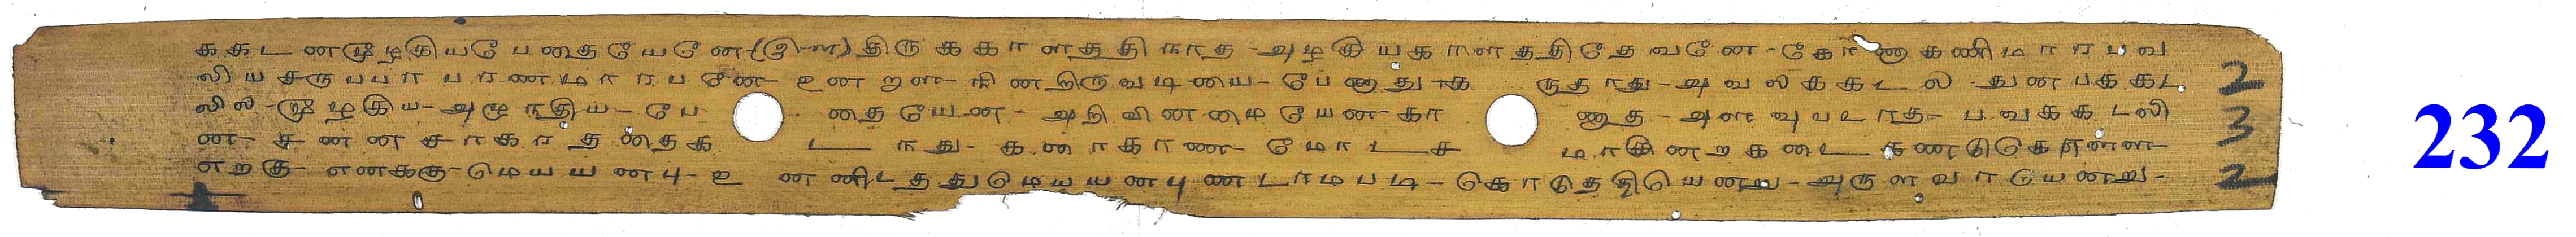 ககடனமூழகியபேதையேனே-(இ-ள) திருககாளததிநாத-அழகியகாளததிதேவனே-கோணுகணிமாரபவ
லியசருபபாபரணமாரபனே-உனறன-நினறிருவடியை-பேணுதுக ருதாது-அவலககடல-துனபககட
லில-மூழகிய-அமூநதிய-பே தையேன-அறிவினமையேன-கா ணூத-அளவுபடாத-பவககடலி
ன-சனனசாகரததைக டாது-கனாகாண-மோடச மாகினறகடைகணடுகொளள
எறகு-எனககு-மெயயனபு-உ னனிடததுமெயயனபுணடாமபடி-கொடுததியெனறு-அருளவாயெனறு-
2
3
2
232